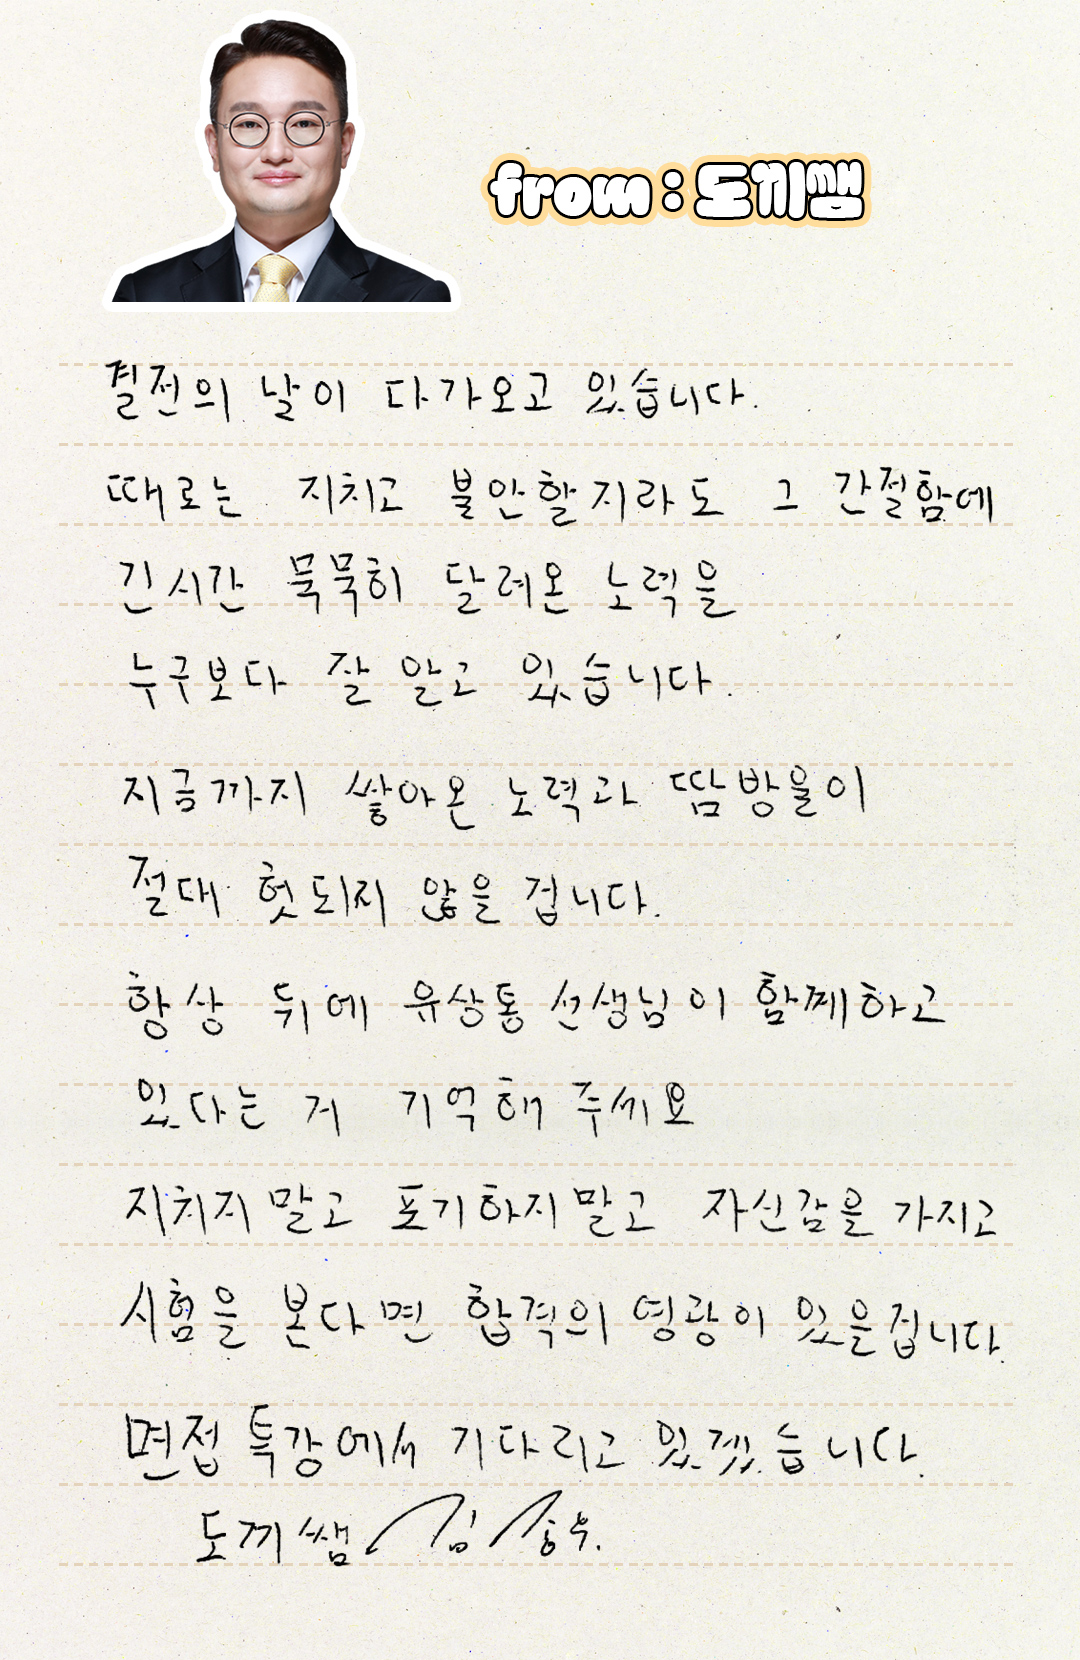 from : 도끼쌤
결전의 날이 다가오고 있습니다.
때로는 지치고 불안할지라도 그 간절함에
긴 시간 묵묵히 달려온 노력을
누구보다 잘 알고 있습니다.
지금까지 쌓아온 노력과 땀방울이
절대 헛되지 않을 겁니다.
항상 뒤에 유상통 선생님이 함께하고
있다는 거 기억해 주세요
지치지 말고 포기하지 말고 자신감을 가지고
시험을 본다면 합격의 영광이 있을겁니다.
면접 특강에서 기다리고 있겠습니다.
도끼쌤 김